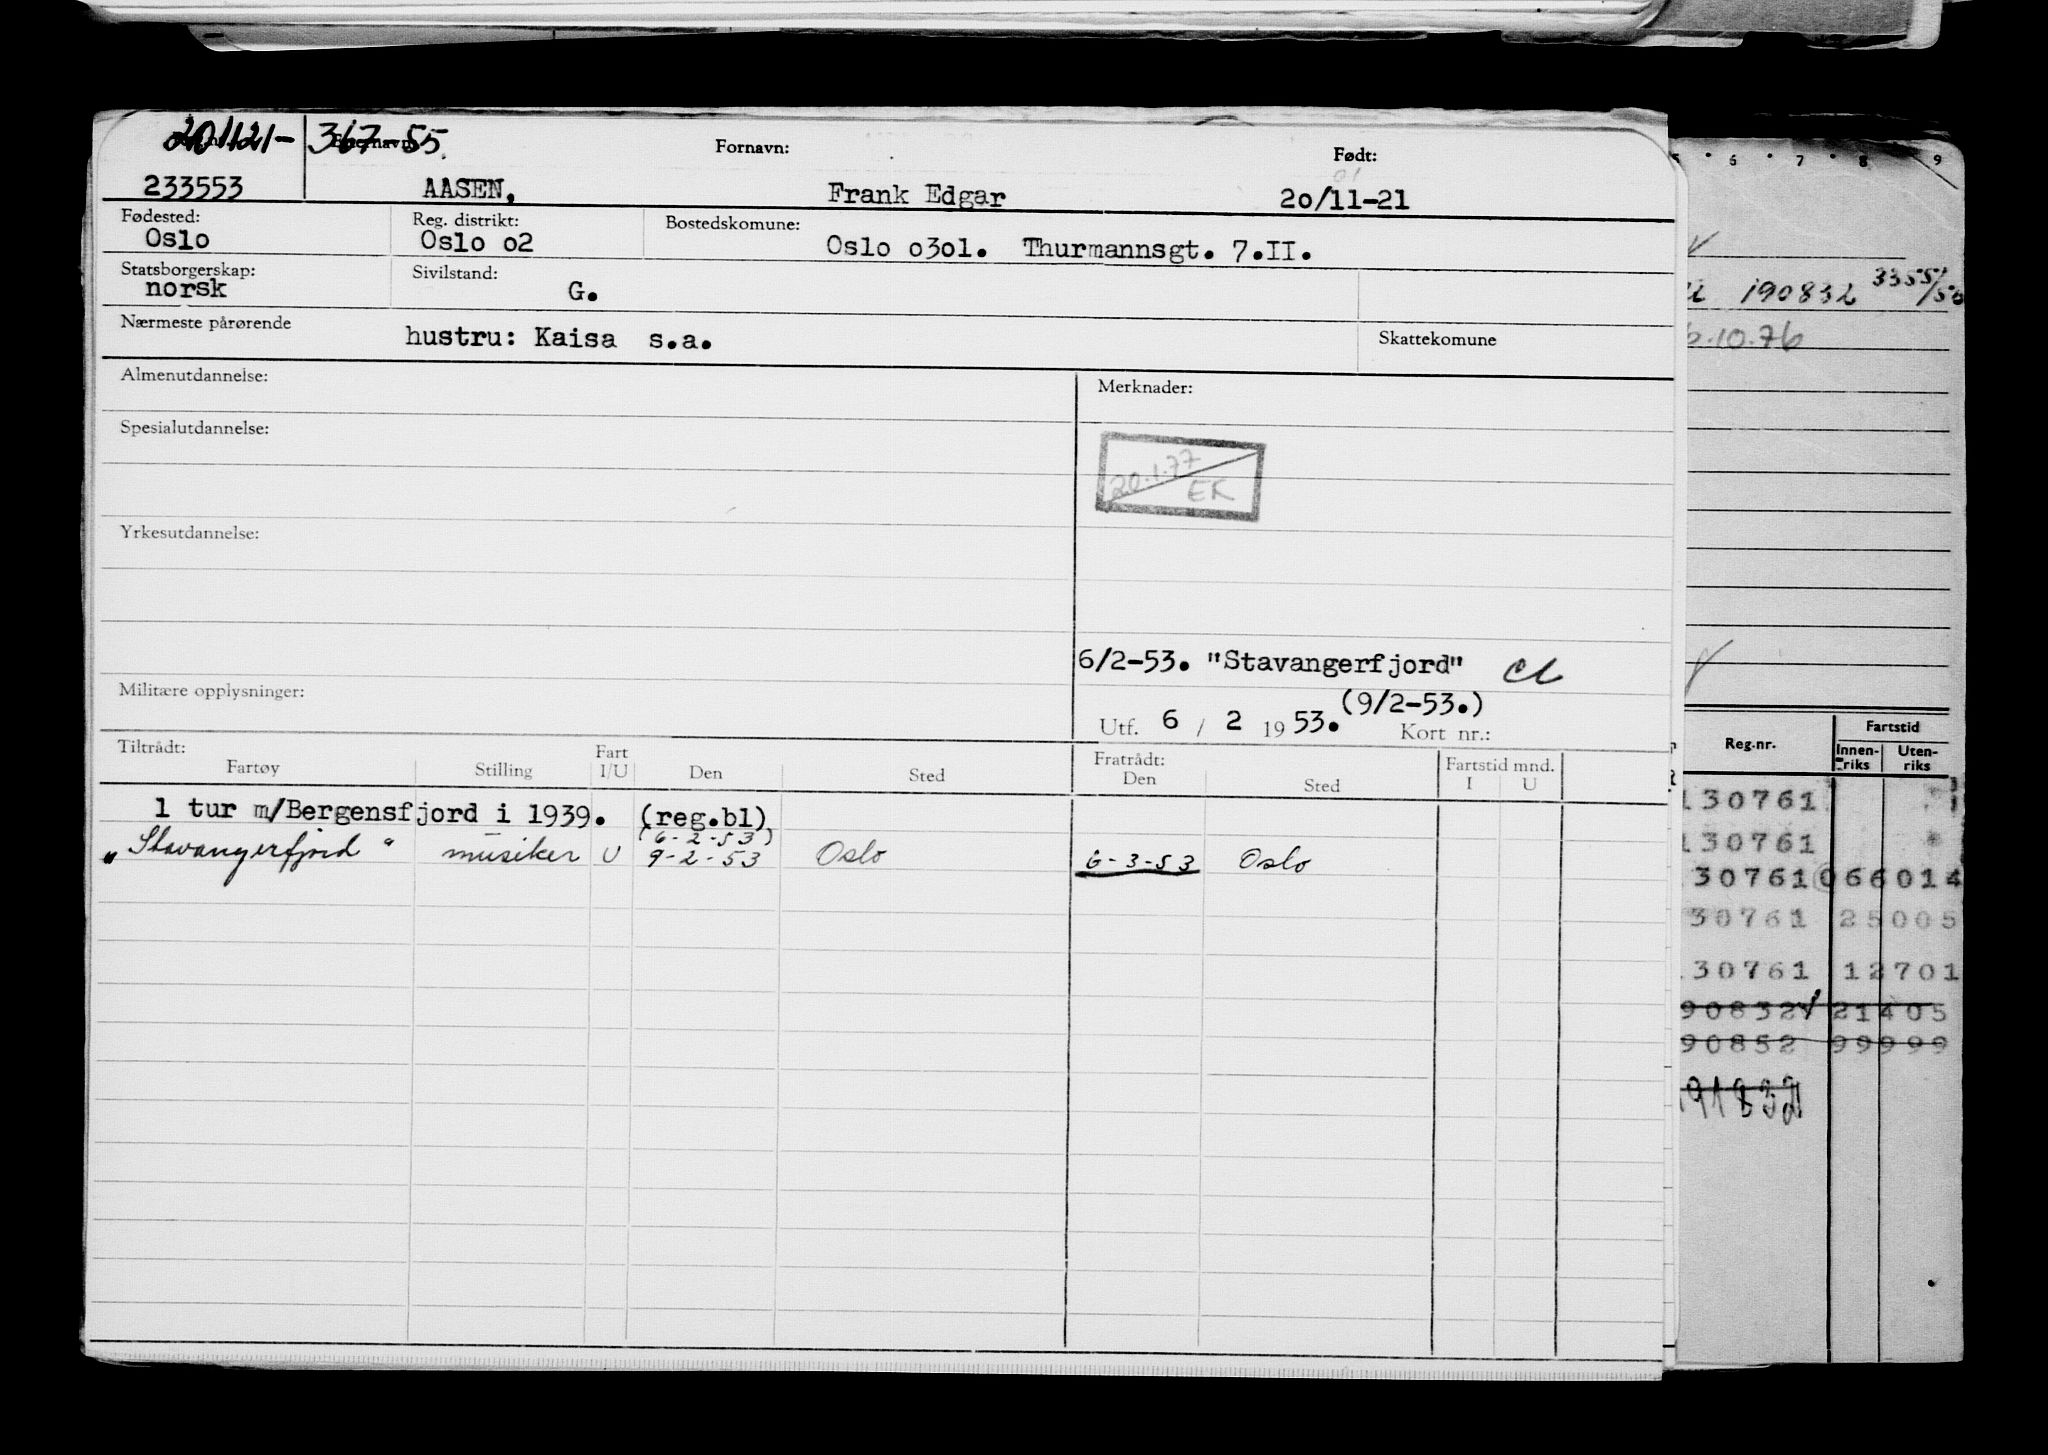 201121- 367-55
Fornavn: Født:
233553 AASEN, Frank Edgar 2o/11-21
Fødested: Reg. distrikt: Bostedskomune:
Oslo Oslo o2 Oslo o3o1. Thurmannsgt. 7.II.
Statsborgerskap: Sivilstand:
norsk G.
Nærmeste pårørende hustru: Kaisa s.a. Skattekomune
Almenutdannelse: Merknader:
Spesialutdannelse:
20.1.77
EK
Yrkesutdannelse:
6/2-53. "Stavangerfjord"
Militære opplysninger:
(9/2-53.)
Utf. 6 / 2 1953. Kort nr.:
Tiltrådt: Fart Fratrådt: Fartstid mnd.
Fartøy Stilling I/U Den Sted Den Sted I U
1 tur m/Bergensfjord i 1939. (reg.bl)
(6-2-53)
"Stavangerfjord" musiker U 9-2-53 Oslo 6-3-53 Oslo
6 7 8 9
190832 3355/56
.10.76
Reg.nr. Fartstid
Innen-riks Uten-riks
130761
130761
30761 066014
30761 25005
30761 12701
90832 21405
90852 99999